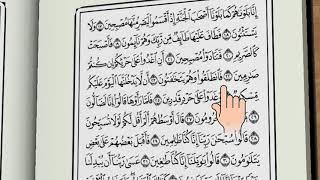 إِنَّا بَلَوْنَٰهُمْ كَمَا بَلَوْنَآ أَصْحَٰبَ ٱلْجَنَّةِ إِذْ أَقْسَمُوا۟ لَيَصْرِمُنَّهَا مُصْبِحِينَ ١٧ وَلَا
يَسْتَثْنُونَ ١٨ فَطَافَ عَلَيْهَا طَآئِفٌ مِّن رَّبِّكَ وَهُمْ نَآئِمُونَ ١٩ فَأَصْبَحَتْ
كَٱلصَّرِيمِ ٢٠ فَتَنَادَوْا۟ مُصْبِحِينَ ٢١ أَنِ ٱغْدُوا۟ عَلَىٰ حَرْثِكُمْ إِن كُنتُمْ
صَٰرِمِينَ ٢٢ فَٱنطَلَقُوا۟ وَهُمْ يَتَخَٰفَتُونَ ٢٣ أَن لَّا يَدْخُلَنَّهَا ٱلْيَوْمَ عَلَيْكُم
مِّسْكِينٌ غَدَوْا۟ عَلَىٰ حَرْدٍ قَٰدِرِينَ ٢٥ فَلَمَّا رَأَوْهَا قَالُوٓا۟ إِنَّا لَضَآلُّونَ
٢٦ مَحْرُومُونَ ٢٧ قَالَ أَوْسَطُهُمْ أَلَمْ أَقُل لَّكُمْ لَوْلَا تُسَبِّحُونَ
٢٨ قَالُوا۟ سُبْحَٰنَ رَبِّنَآ إِنَّا كُنَّا ظَٰلِمِينَ ٢٩ فَأَقْبَلَ بَعْضُهُمْ عَلَىٰ بَعْضٍ
يَتَلَٰوَمُونَ ٣٠ قَالُوا۟ يَٰوَيْلَنَآ إِنَّا كُنَّا طَٰغِينَ ٣١ عَسَىٰ رَبُّنَآ أَن يُبْدِلَنَا